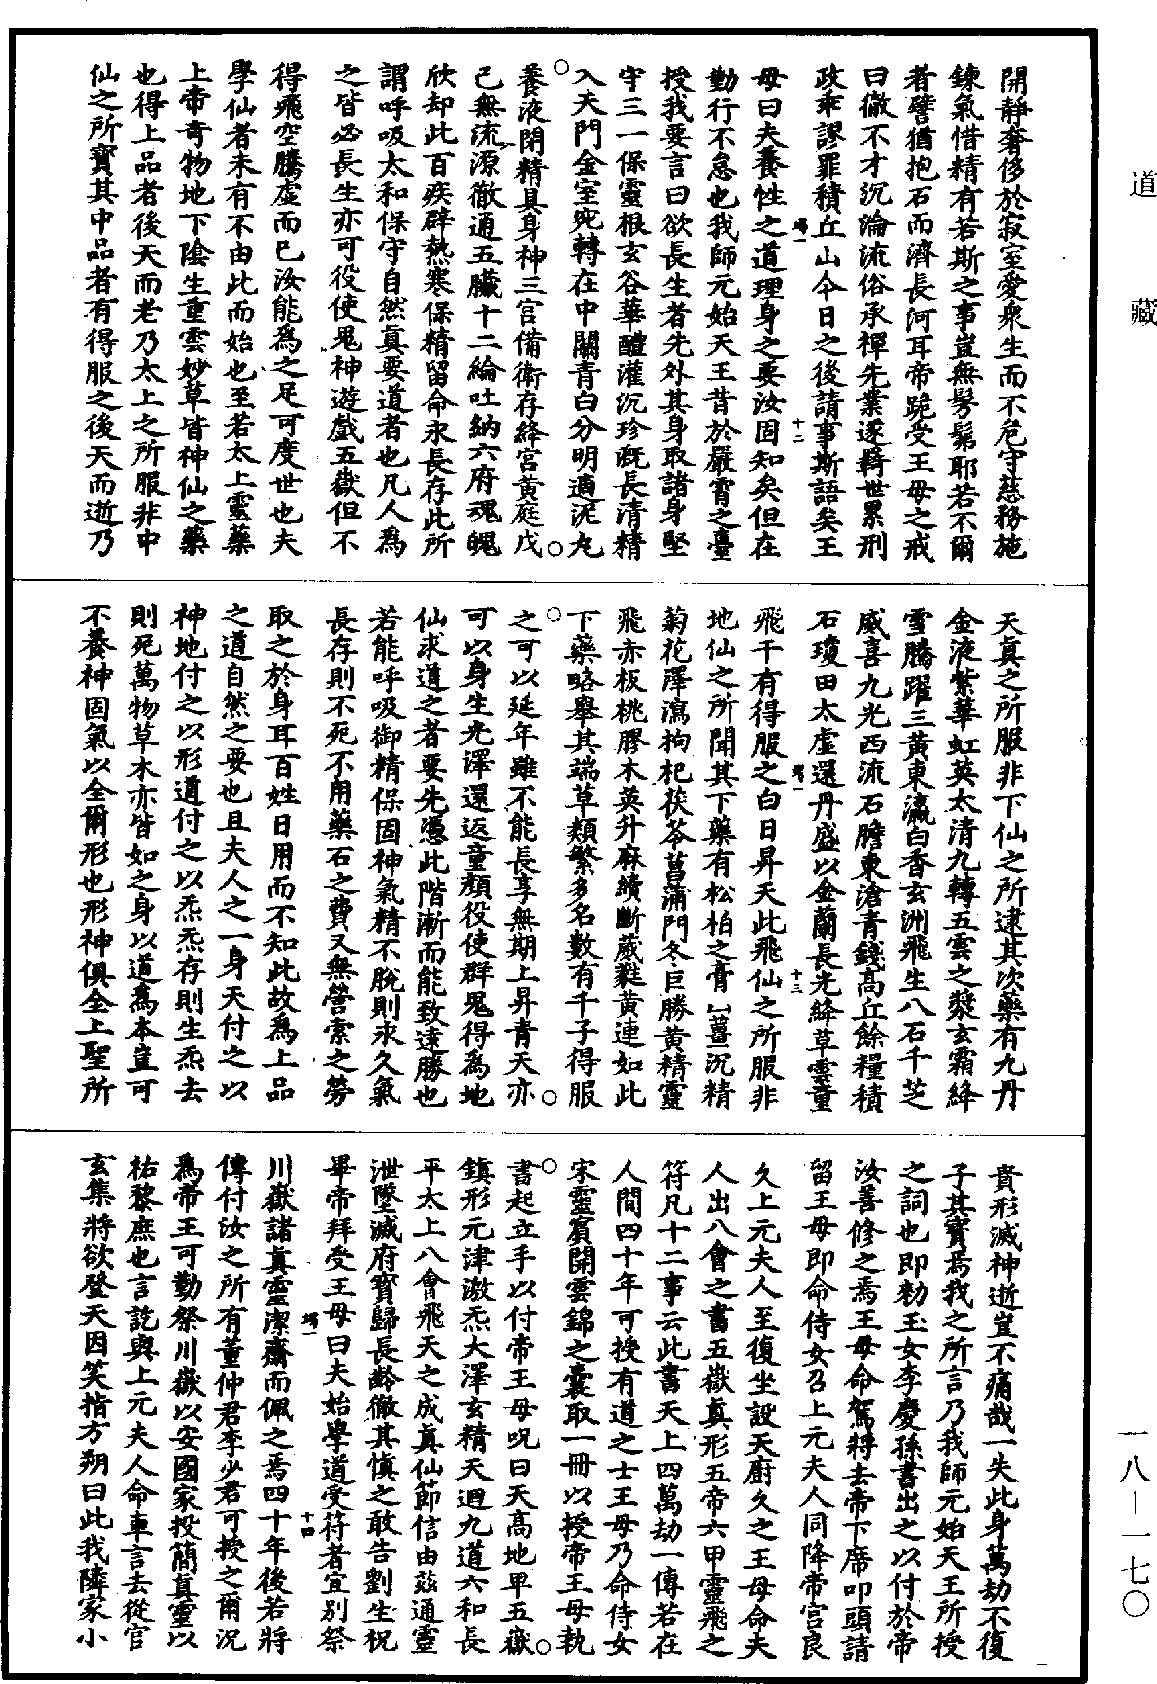 道藏
開靜奢侈於寂室愛衆生而不危守慈務施
鍊氣惜精有若斯之事豈無髣髴耶若不爾
者譬猶抱石而濟長河耳帝跪受王母之戒
曰徹不才沉淪流俗承禪先業遂羇世累刑
政乖謬罪積丘山今日之後請事斯語矣王
母曰夫養性之道理身之要汝固知矣但在
勤行不怠也我師元始天王昔於嚴霄之臺
授我要言曰欲長生者先外其身取諸身堅
守三一保靈根玄谷華醴灌沉珍旣長清精
入天門金室宛轉在中關青白分明適泥丸
養液閉精具身神三宮備衛存絳宮黃庭戊
己無流源徹通五臟十二綸吐納六府魂魄
欣却此百疾辟熱寒保精留命永長存此所
謂呼吸太和保守自然眞要道者也凡人爲
之皆必長生亦可役使鬼神遊戲五嶽但不
得飛空騰虛而已汝能爲之足可度世也夫
學仙者未有不由此而始也至若太上靈藥
上帝奇物地下陰生重雲妙草皆神仙之藥
也得上品者後天而老乃太上之所服非中
仙之所寶其中品者有得服之後天而逝乃
天眞之所服非下仙之所逮其次藥有九丹
金液紫華虹英太清九轉五雲之漿玄霜絳
雪騰躍三黃東瀛白香玄洲飛生八石千芝
威喜九光西流石膽東滄青錢高丘餘糧積
石瓊田太虛還丹盛以金蘭長光絳草雲童
飛千有得服之白日昇天此飛仙之所服非
地仙之所聞其下藥有松柏之膏山薑沉精
菊花澤瀉拘杞茯苓菖蒲門冬巨勝黃精靈
飛赤板桃膠木英升麻續斷葳蕤黃連如此
下藥略舉其端草類繁多名數有千子得服
之可以延年雖不能長享無期上昇青天亦
可以身生光澤還返童顏役使群鬼得爲地
仙求道之者要先憑此階漸而能致遠勝也
若能呼吸御精保固神氣精不脫則永久氣
長存則不死不用藥石之費又無營索之勞
取之於身耳百姓日用而不知此故爲上品
之道自然之要也且夫人之一身天付之以
神地付之以形道付之以炁炁存則生炁去
則死萬物草木亦皆如之身以道爲本豈可
不養神固氣以全爾形也形神俱全上聖所
貴形滅神逝豈不痛哉一失此身萬劫不復
子其寶焉我之所言乃我師元始天王所授
之詞也即勑玉女李慶孫書出之以付於帝
汝善修之焉王母命駕將去帝下席叩頭請
留王母即命侍女召上元夫人同降帝宮良
久上元夫人至復坐設天廚久之王母命夫
人出八會之書五嶽眞形五帝六甲靈飛之
符凡十二事云此書天上四萬劫一傳若在
人間四十年可授有道之士王母乃命侍女
宋靈賓開雲錦之囊取一冊以授帝王母執
書起立手以付帝王母呪曰天高地卑五嶽
鎮形元津激炁大澤玄精天迴九道六和長
平太上八會飛天之成眞仙節信由茲通靈
泄墜滅府寶歸長齡徹其愼之敢告劉生祝
畢帝拜受王母曰夫始學道受符者宜別祭
川嶽諸眞靈潔齋而佩之焉四十年後若將
傳付汝之所有董仲君李少君可授之爾況
爲帝王可勤祭川嶽以安國家投簡眞靈以
祐黎庶也言訖與上元夫人命車言去從官
玄集將欲登天因笑指方朔曰此我隣家小
十二
十三
十四
一八—一七〇